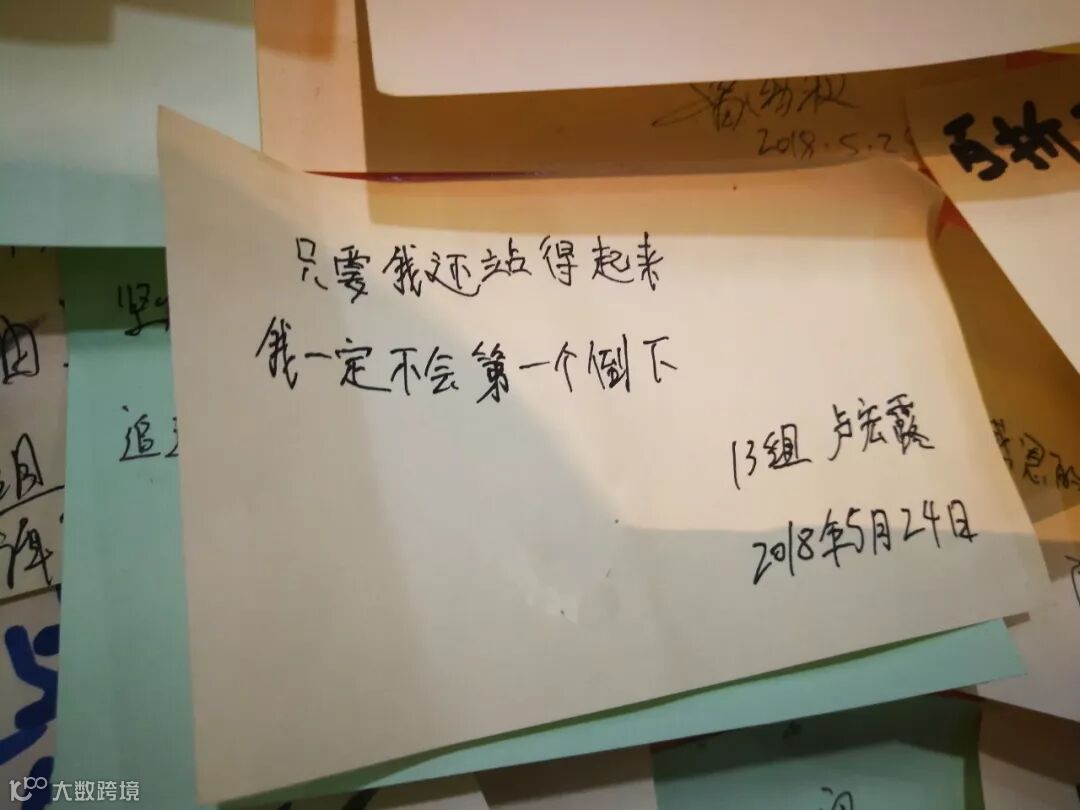 2018.5.2
再折
只要我还站得起来
我一定不会第一个倒下
13组 卢宏霞
2018年5月24日
坚
追
由
组
恩
大数跨境